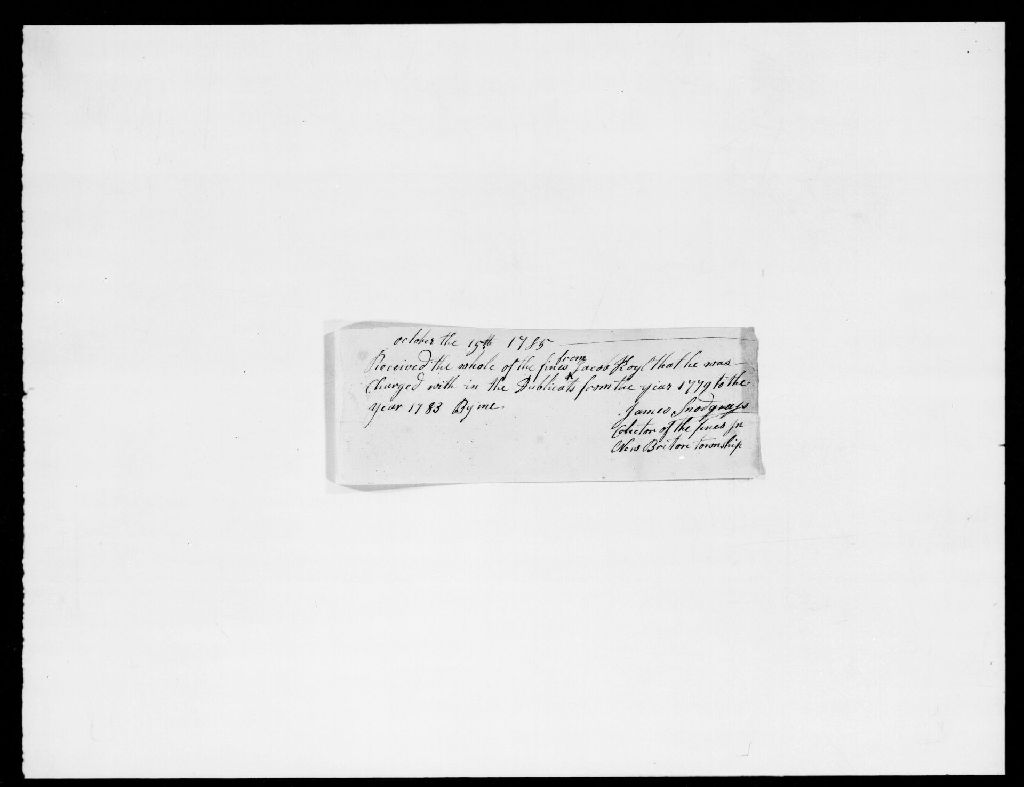 october the 15th 1785
Received the whole of the fines from Jacob Hoyl that he was
Charged with in the Dublicats from the year 1779 to the
year 1783 By me
James Snodgrass
Colector of the fines in
New Briton township